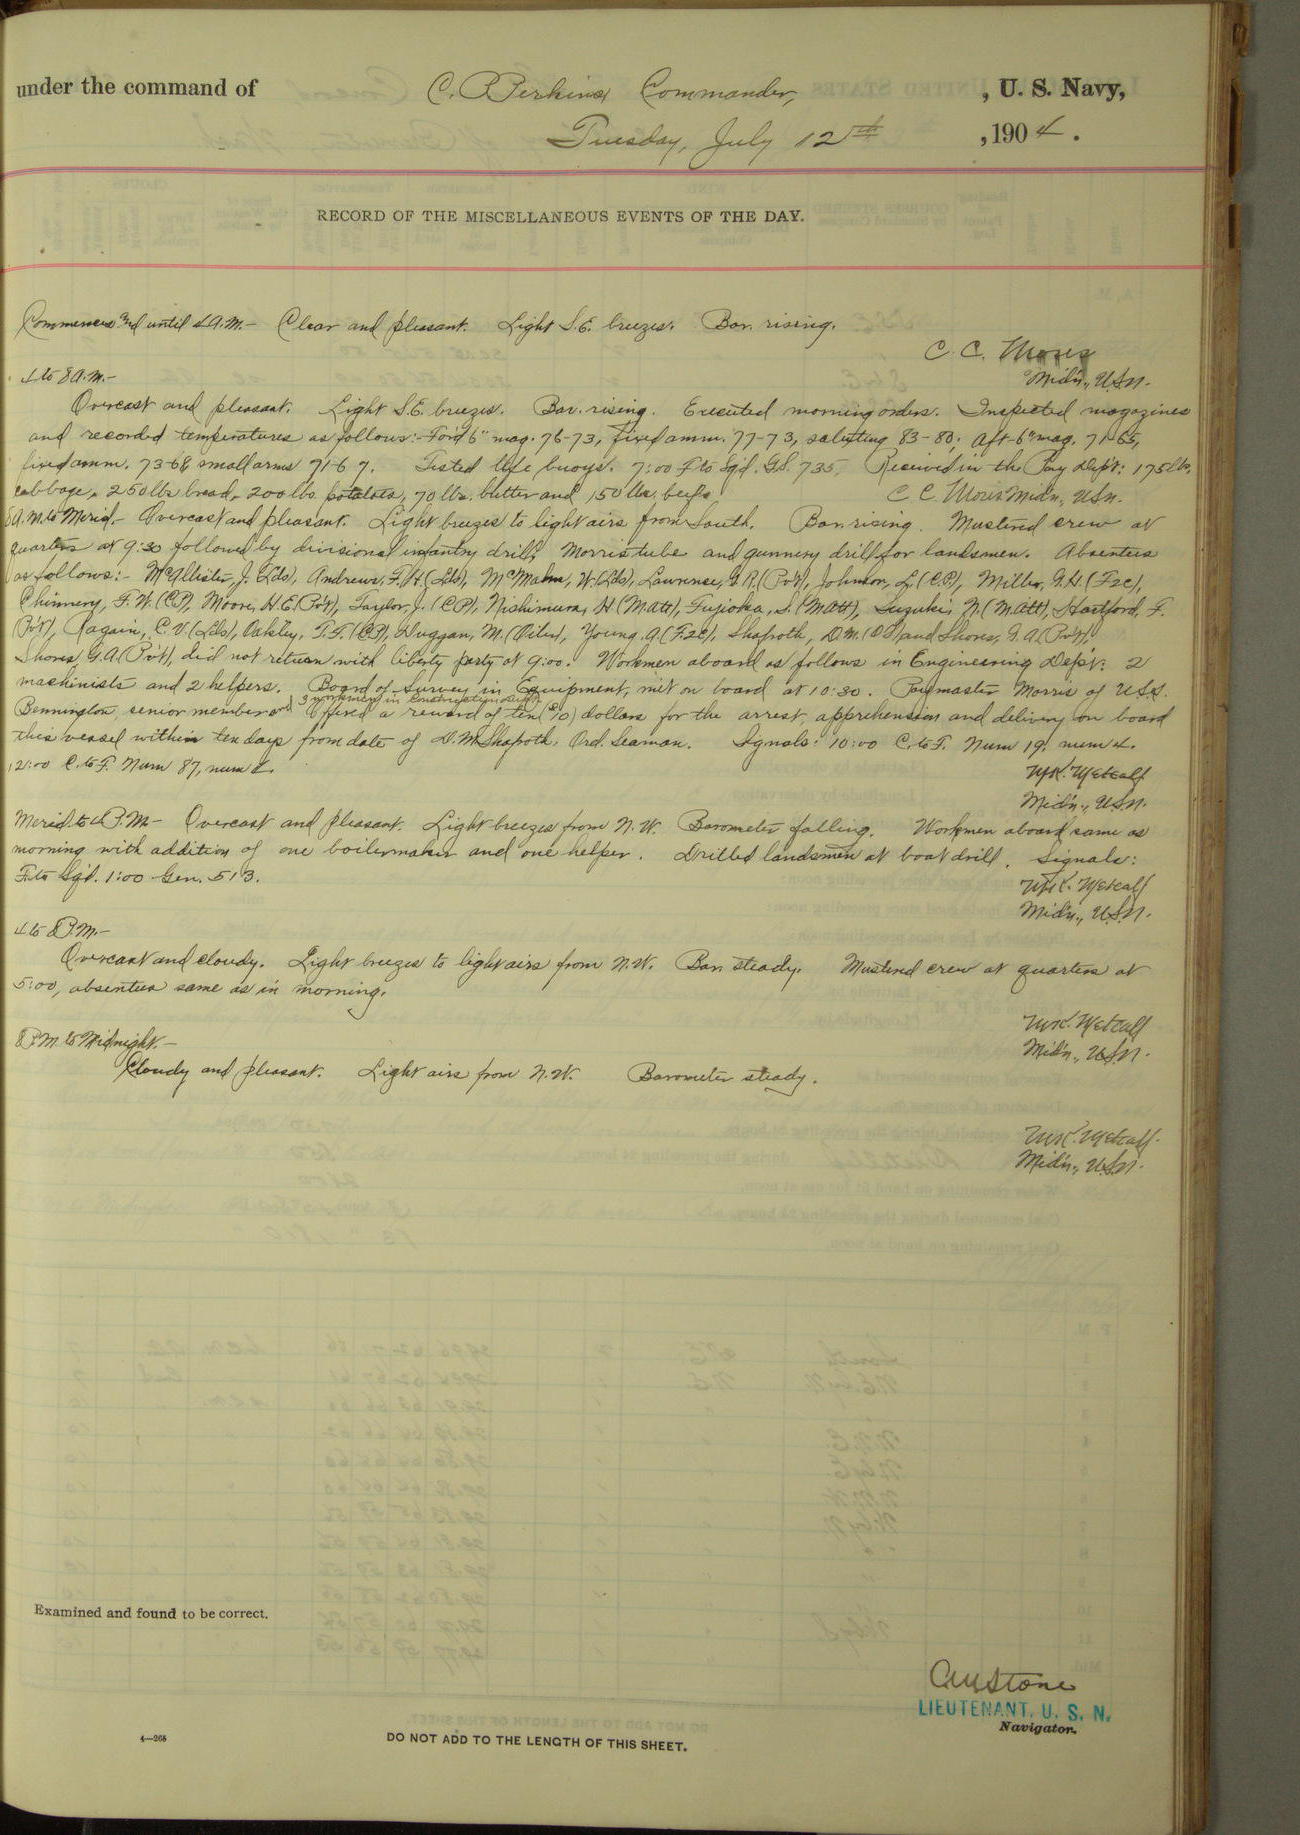 under the command of C. P. Perkins Commander, , U. S. Navy,
Tuesday, July 12th , 1904.
RECORD OF THE MISCELLANEOUS EVENTS OF THE DAY.
Commences and until 4 A.M.- Clear and pleasant. Light S.E. breezes. Bar. rising.
C. C. Moses
Mid'n., U.S.N.
4 to 8 A.M.-
Overcast and pleasant. Light S.E. breezes. Bar. rising. Executed morning orders. Inspected magazines
and recorded temperatures as follows:- For'd 6" mag. 76-73, fixed amm. 77-73, saluting 83-80; Aft-6" mag. 71-65,
fixed amm. 73-68 small arms 71-67. Tested life buoys. 7:00 F. to Sqd. G.S. 735. Received in the Pay Dep't: 175 lbs.
cabbage, 250 lbs bread, 200 lbs. potatoes, 70 lbs. butter and 150 lbs. beets. C C Moses Mid'n, U.S.N.
8 A.M. to Merid.- Overcast and pleasant. Light breezes to light airs from South. Bar. rising. Mustered crew at
quarters at 9:30 followed by divisional infantry drill, Morris tube and gunnery drill for landsmen. Absentees
as follows:- McAllister, J. (Lds), Andrews, F. H. (Lds), McMahn, W. (Lds), Lawrence, G R. (Pv't), Johnson, L. (C.P.), Miller, G. H. (F2c),
Chinnery, F. W. (C.P.), Moore, H. E. (Pv't), Taylor, J. (C.P.), Nishimura, H (M Att), Fujioka, S. (M Att), Suzuki, N. (M. Att), Hartford, F.
(Pv't), Ragain, C. V. (Lds), Oakley, T. F. (C.P.), Duggan, M. (Oiler), Young A (F.2c), Shafroth, D. M. (O.S) and Shores, G. A. (Pv't).
Shores, G. A. (Pv't), did not return with liberty party at 9:00. Workmen aboard as follows in Engineering Dep't: 2
machinists and 2 helpers. Board of Survey in Equipment, met on board at 10:30. Paymaster Morris of U.S.S.
and 3 workmen in Construction Dep't.
Bennington, senior member. Offered a reward of ten ($10) dollars for the arrest, apprehension and delivery on board
this vessel within ten days from date of D. M. Shafroth, Ord. Seaman. Signals: 10:00 C. to F. Num 19, num 4.
12:00 C. to F. Num 87, num 2.
W.K. Metcalf
Mid'n., U.S.N.
Merid. to 4 P.M.- Overcast and pleasant. Light breezes from N. W. Barometer falling. Workmen aboard same as
morning with addition of one boilermaker and one helper. Drilled landsmen at boat drill. Signals:
F. to Sqd. 1:00 Gen. 513.
W.K. Metcalf
Mid'n., U.S.N.
4 to 8 P.M.-
Overcast and cloudy. Light breezes to light airs from N.W. Bar. steady. Mustered crew at quarters at
5:00, absentees same as in morning.
W.K. Metcalf
Mid'n., U.S.N.
8 P.M. to Midnight.-
Cloudy and pleasant. Light airs from N. W. Barometer steady.
W.K. Metcalf.
Mid'n., U.S.N.
Examined and found to be correct.
C M Stone
LIEUTENANT, U. S. N.
Navigator.
4—265
DO NOT ADD TO THE LENGTH OF THIS SHEET.